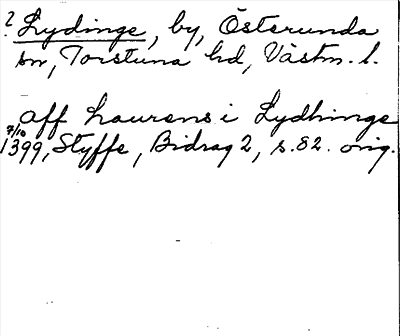 ? Lydinge, by, Österunda
sn, Torstuna hd, Västm. l.
aff Laurens i Lydhinge
7/10
1399, Styffe, Bidrag 2, s. 82. orig.